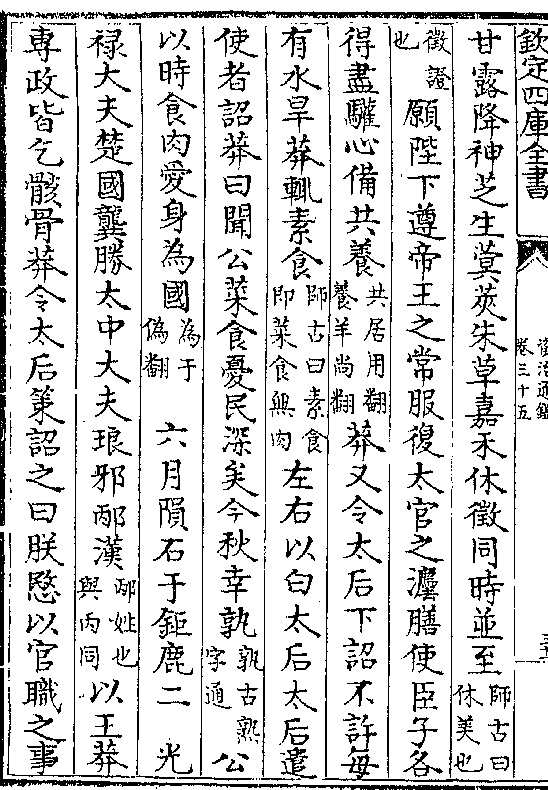 欽定四庫全書
資治通鑑
卷三十五
甘露降神芝生蓂莢朱草嘉禾休徵同時並至師古曰休美也
徵證也願陛下遵帝王之常服復太官之灋膳使臣子各
得盡驩心備共養共居用翻養羊尚翻莽又令太后下詔不許每
有水旱莽輒素食師古曰素食即菜食無肉左右以白太后太后遣
使者詔莽曰聞公菜食憂民深矣今秋幸孰孰古熟字通公
以時食肉愛身為國為于偽翻 六月隕石于鉅鹿二 光
祿大夫楚國龔勝太中大夫琅邪邴漢邴姓也與丙同以王莽
専政皆乞骸骨莽令太后策詔之曰朕愍以官職之事